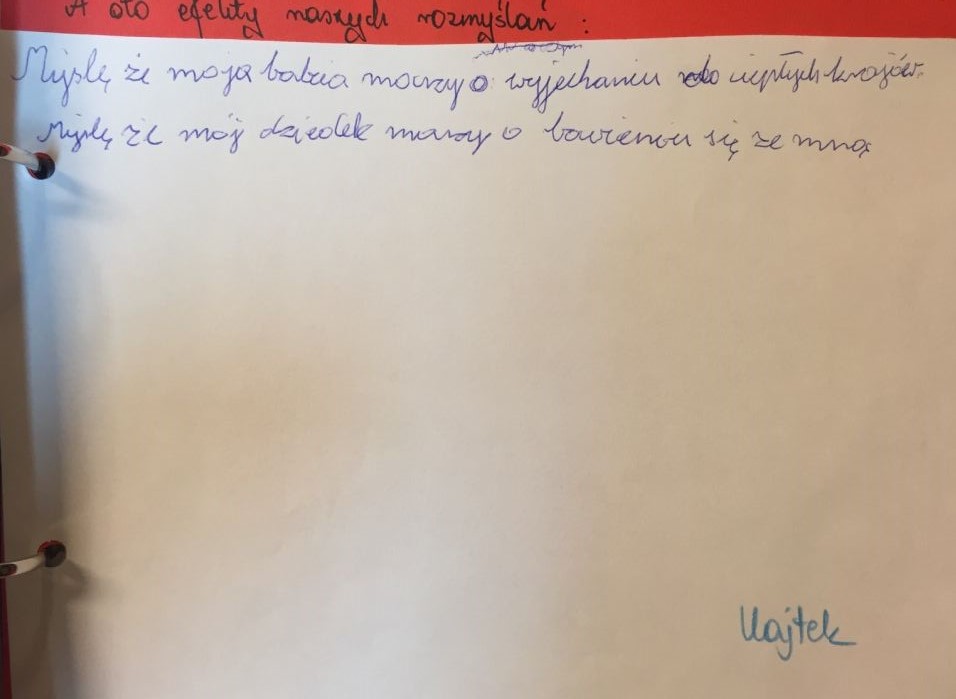 A oto efekty naszych rozmyślań :
Myślę że moja babcia marzy o wyjechaniu do ciepłych krajów.
Myślę że mój dziadek marzy o bawieniu się ze mną
Kajtek